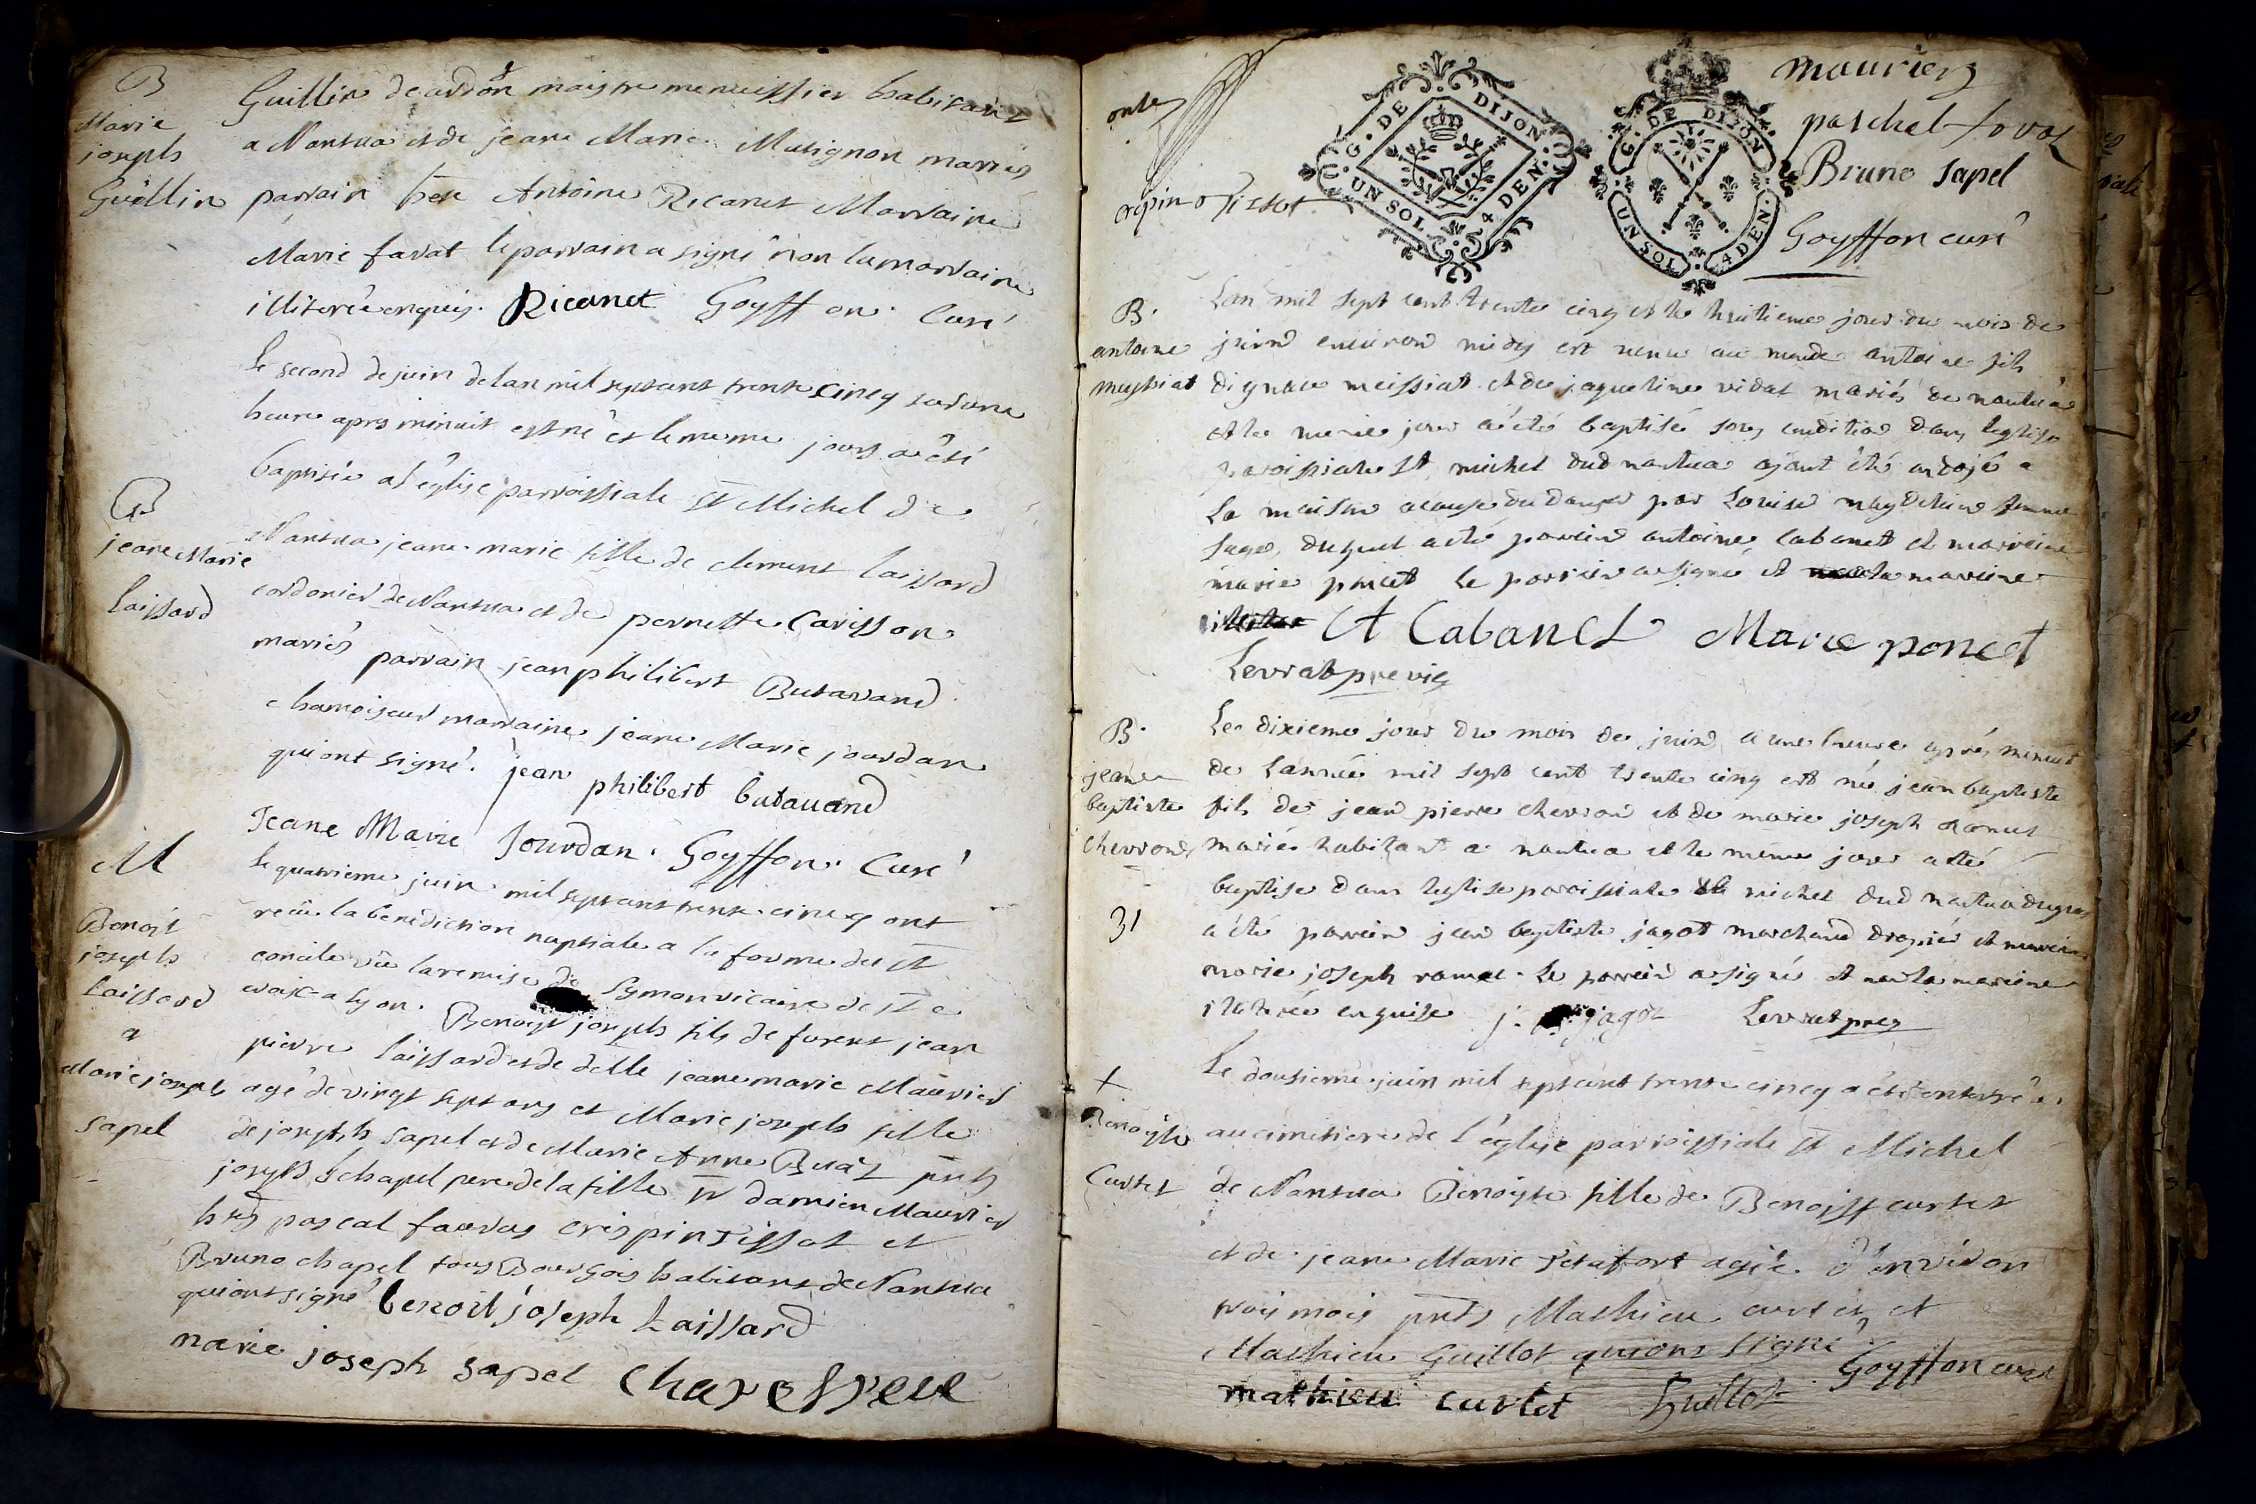 B
Marie
joseph
Guillin
Guillin de ardon maistre menuissier habitant
a Nantua et de jeane Marie Matignon mariés
parrain Antoine Ricanet Marraine
Marie favat le parrain a signé non la marraine
illiterée enquis. Ricanet Goyffon. Curé
le second de juin de lan mil sept cent trente cincq sur une
heure apres minuit est né et le meme jours a été
baptisée a l'église parroissiale St Michel de
B
jeane Marie
laissard
Nantua jeane marie fille de clement laissard
cordonier de Nantua et de pernette Carisson
mariés parrain jean philibert Butavand
chamoiseur marraine jeane Marie jourdan
qui ont signé. jean philibert butauand
Jeane Marie Jourdan. Goyffon. Curé
M
Benoit
joseph
laissard
a
Marie joseph
Sapel
le quatrieme juin mil sept cent trente cincq ont
reçu la benediction nuptiale a la forme du St
concile vû la remise de Symon vicaire de St
croix a lyon. Benoyt joseph fils de furent jean
pierre laissard et de delle jeane marie Maurier
agé de vingt sept ans et Marie joseph fille
de joseph sapel et de Marie Anne Buaz pnts
joseph chapel pere de la fille Sr damien Maurier
pascal favras crispin tissot et
Bruno chapel tous Bourgois habitant de Nantua
qui ont signé benoit joseph Laissard
marie joseph sapel
crepin tissot
G. DE DIJON
UN SOL 4 DEN.
G. DE DIJON
UN SOL 4 DEN.
maurierz
paschal fovaz
Bruno sapel
Goyffon curé
B.
antoine
meyssiat
Lan mil sept cent trente cinq et le huitieme jour du mois de
juin environ midy est venu au monde antoine fils
dignace meissiat et de jaqueline vidat mariés de nantua
et le meme jour a été baptisé sous condition dans leglise
paroissiale St michel dud nantua ajant été ondojé a
la maison a cause du danger par Louise magdelaine femme
sage, duquel a été parrein antoine Cabanet et marreine
marie poncet le parrein a signé et la mareine
A Cabanet Marie poncet
Levrat pre vic
B.
jean
baptiste
chevron
31
Le dixieme jour du mois de juin a une heure aprés minuit
de lannée mil sept cent trente cinq est né jean baptiste
fils de jean pierre chevron et de marie joseph ramel
mariés habitant a nantua et le meme jour a été
baptise dans leglise paroissiale St michel dud nantua duquel
a été parrein jean baptiste jagot marchand drapier et mareine
marie joseph ramel. le parrein a signé et non la mareine
iliterée enquise j. jagot Levrat pre
+
Benoyte
Curtet
Le dousieme juin mil sept cent trente cincq a été enterrée
au cimetiere de l'église parroissiale St Michel
de Nantua Benoyte fille de Benoist curtet
et de jeane Marie agée. d'environ
trois mois pnts Mathieu curtet et
Mathieu Guillot qui ont signé
mathieu curtet Guillot Goyffon curé